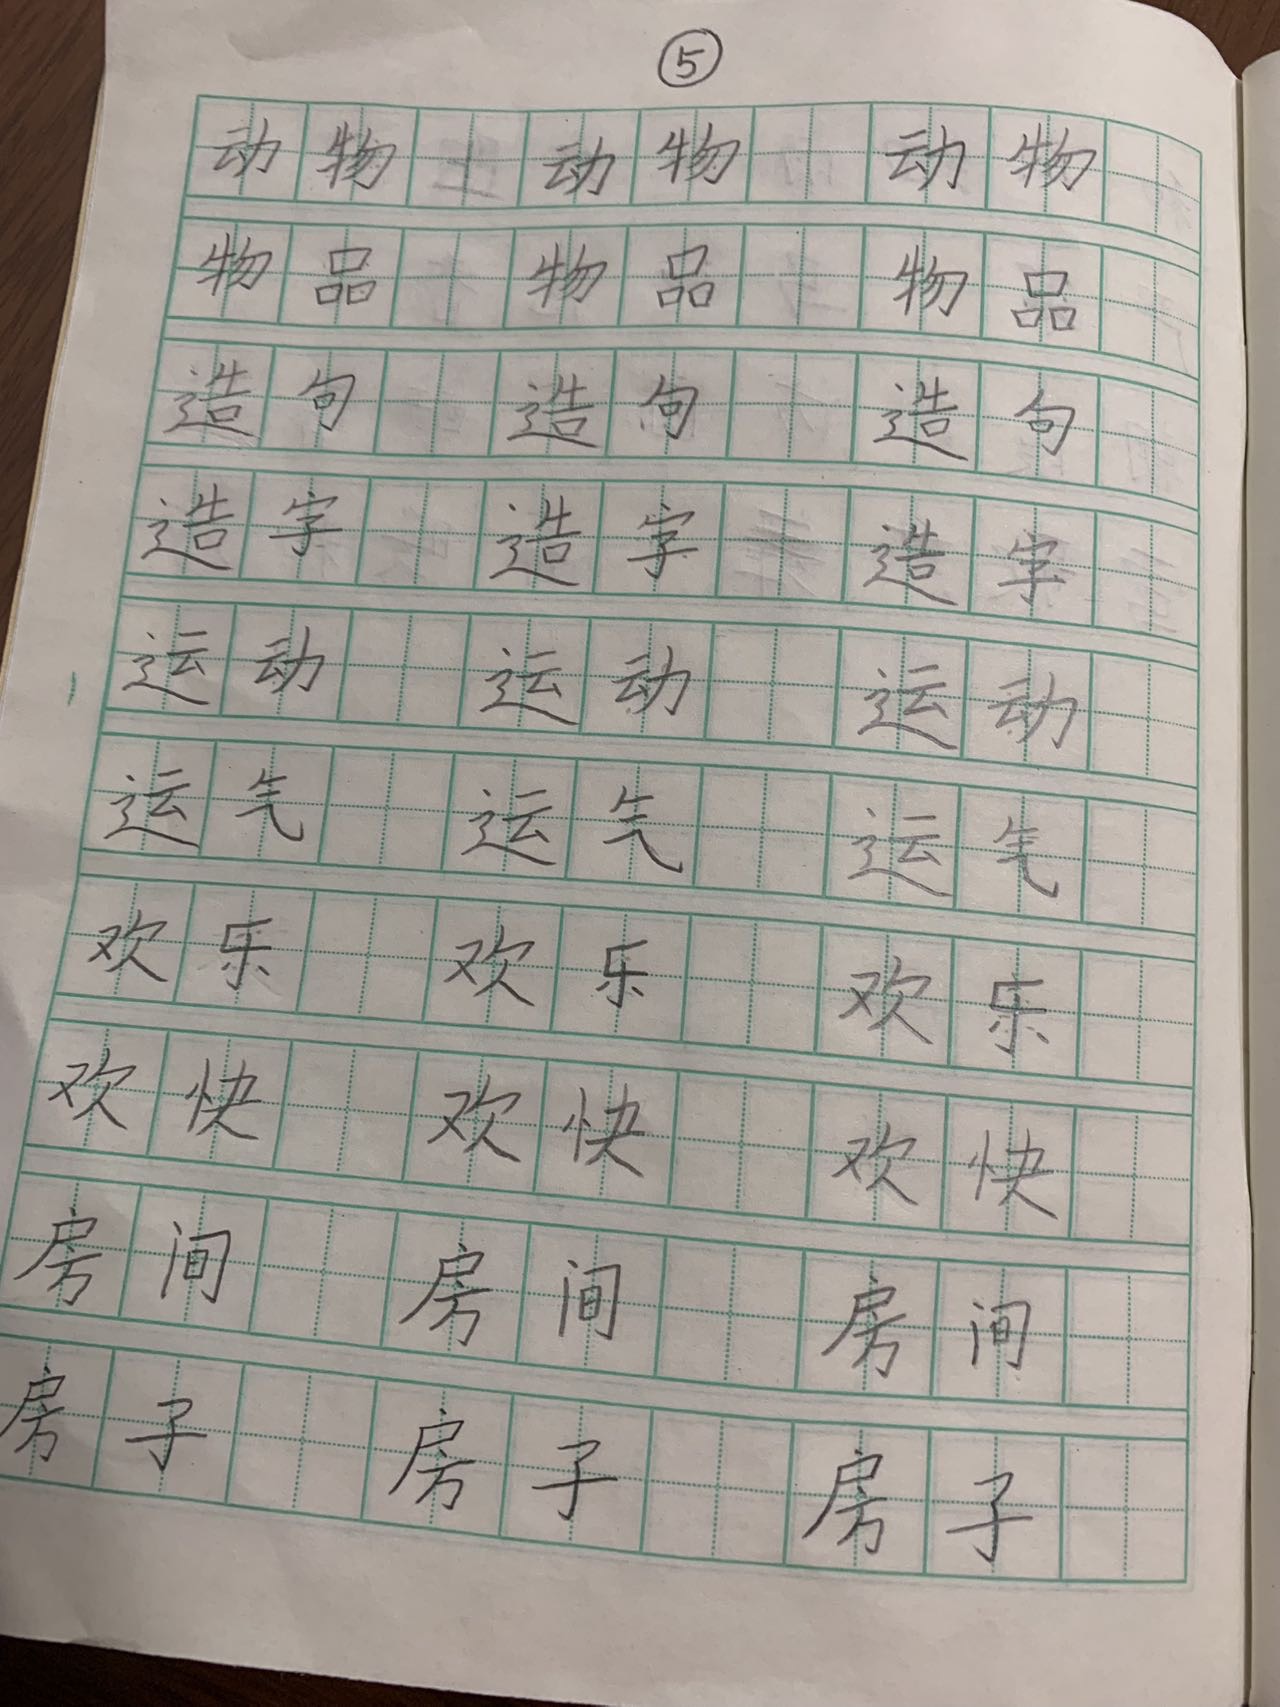 ⑤
动物 动物 动物
物品 物品 物品
造句 造句 造句
造字 造字 造字
运动 运动 运动
运气 运气 运气
欢乐 欢乐 欢乐
欢快 欢快 欢快
房间 房间 房间
房子 房子 房子